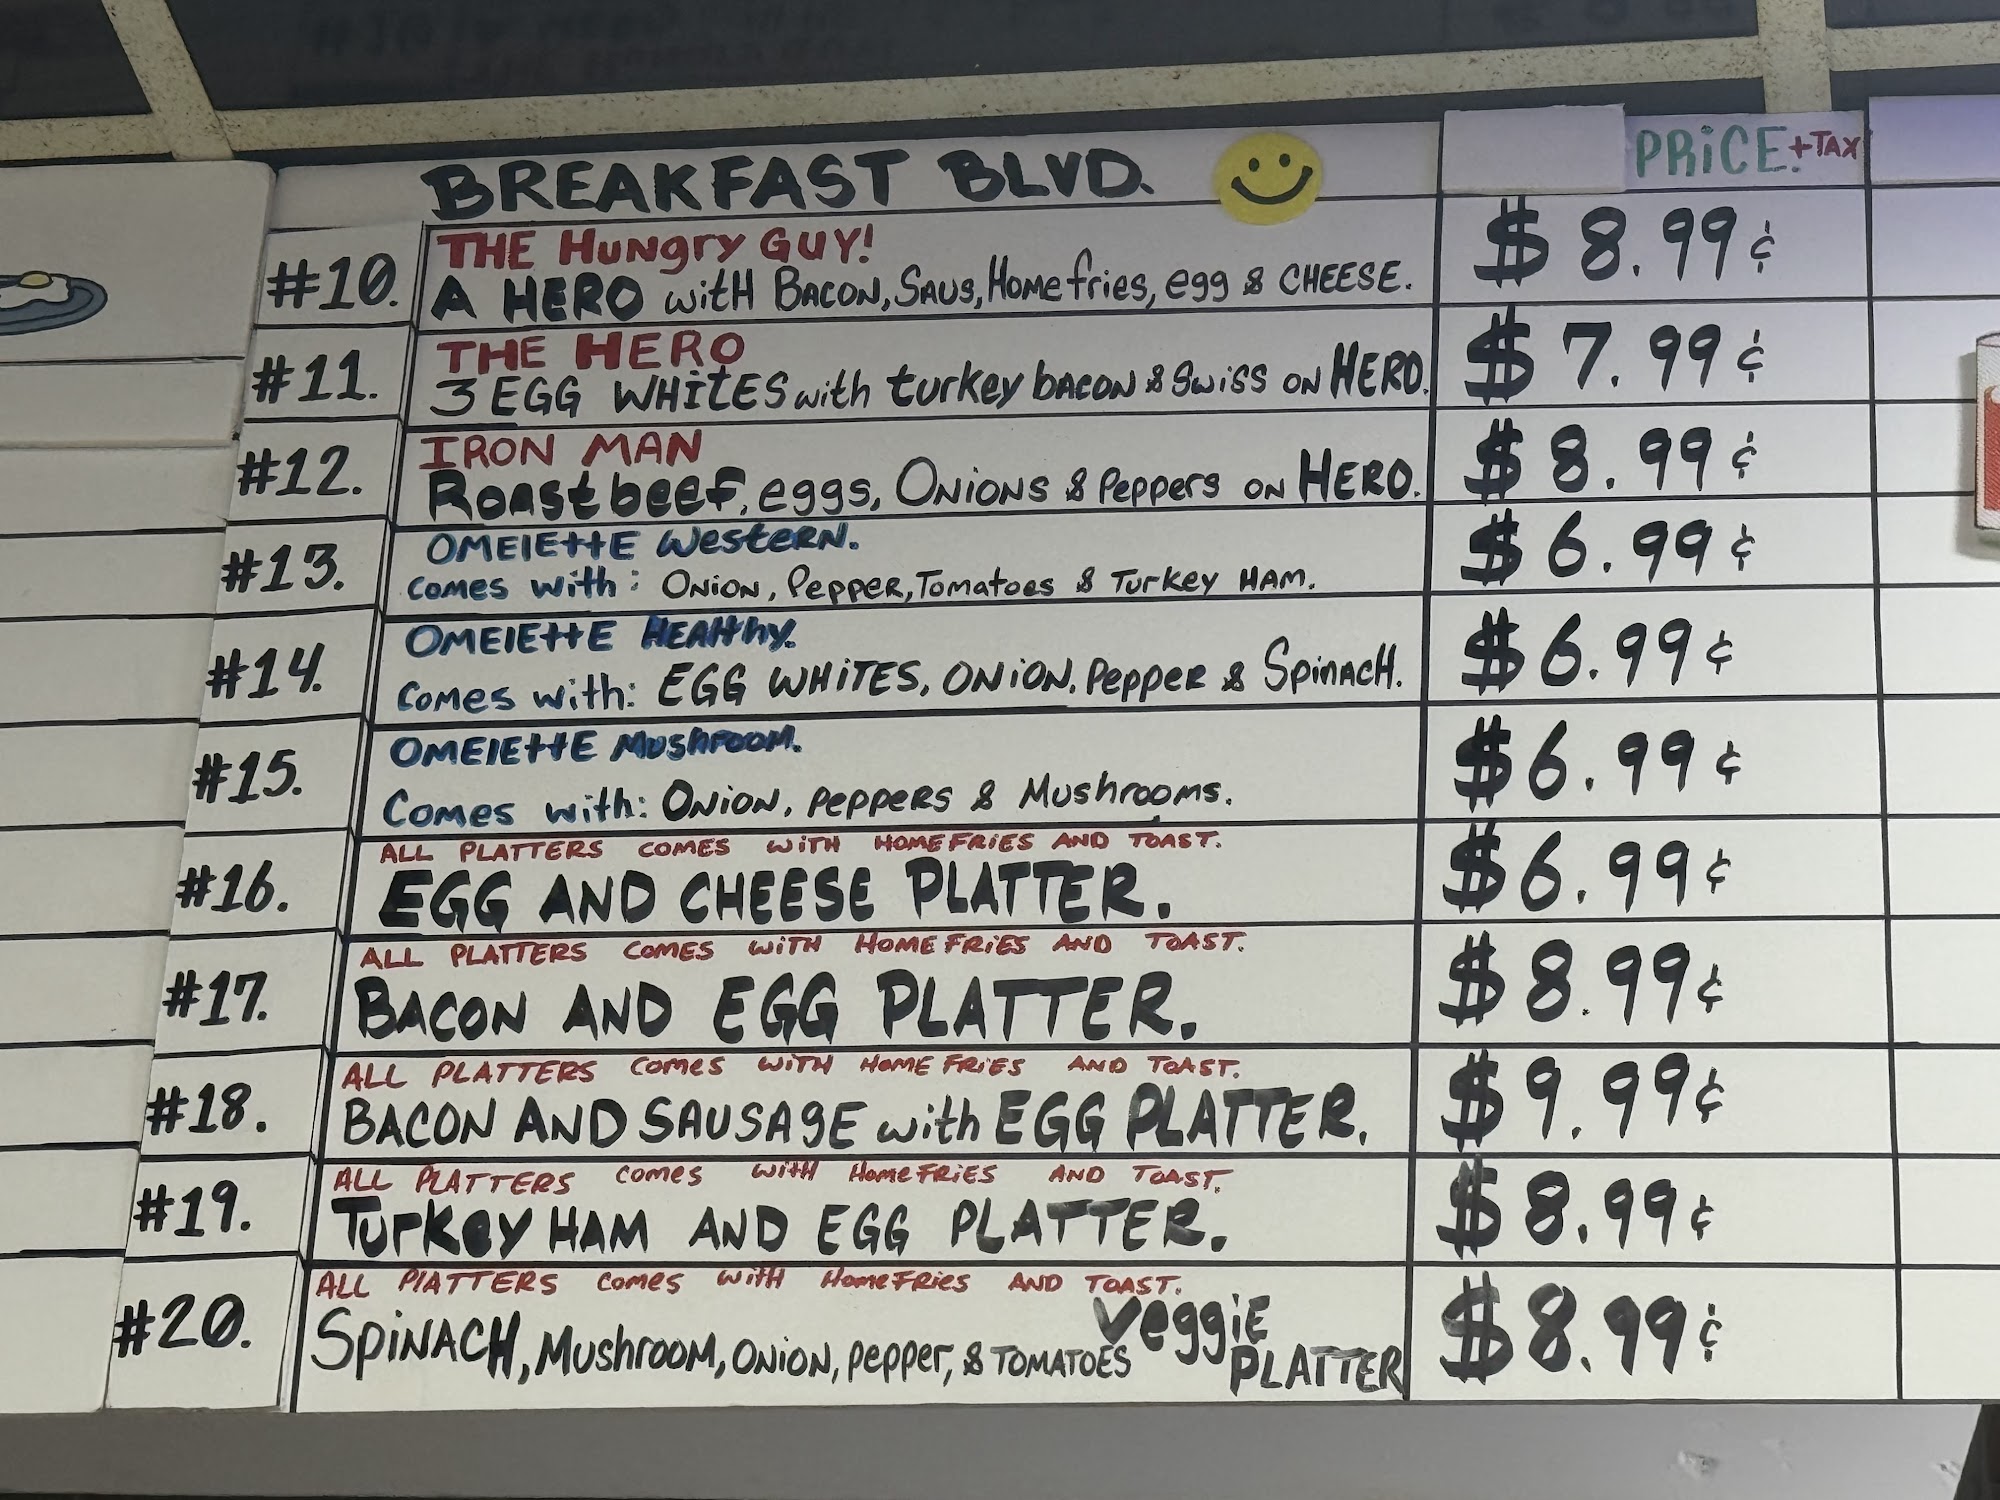 BREAKFAST BLVD.
PRiCE. +TAX
#10. THE HUNgry GUY! $ 8.99¢
A HERO witH BACON, SAUS, HOMEfries, egg & CHEESE.
#11. THE HERO $ 7.99¢
3 EGG WHITES with turkey bACON & SWiSS ON HERO.
#12. IRON MAN $ 8.99¢
Roastbeef, eggs, ONIONS & Peppers ON HERO.
#13. OMElETTE WesteRN. $ 6.99¢
comes with: ONiON, PePPER, Tomatoes & Turkey HAM.
#14. OMElETTE HEAlthy. $ 6.99¢
Comes with: EGG WHiTES, ONiON, PePPeR & SpinacH.
#15. OMElETTE MUSHROOM. $ 6.99¢
Comes with: ONiON, PePPeRS & Mushrooms.
ALL PLATTERS COMES WiTH HOMEFRiES AND TOAST.
#16. EGG AND CHEESE PLATTER. $ 6.99¢
ALL PLATTERS COMES WiTH HOMEFRiES AND TOAST.
#17. BACON AND EGG PLATTER. $ 8.99¢
ALL PLATTERS COMES WiTH HOMEFRiES AND TOAST.
#18. BACON AND SAUSAgE with EGG PLATTER. $ 9.99¢
ALL PLATTERS comes WitH HomeFRiES AND TOAST.
#19. TURKey HAM AND EGG PLATTER. $ 8.99¢
ALL PlATTERS comes WitH HomeFRies AND TOAST.
#20. SPiNACH, MushrooM, ONiON, pepper, & TOMATOES Veggie PLATTER $ 8.99¢